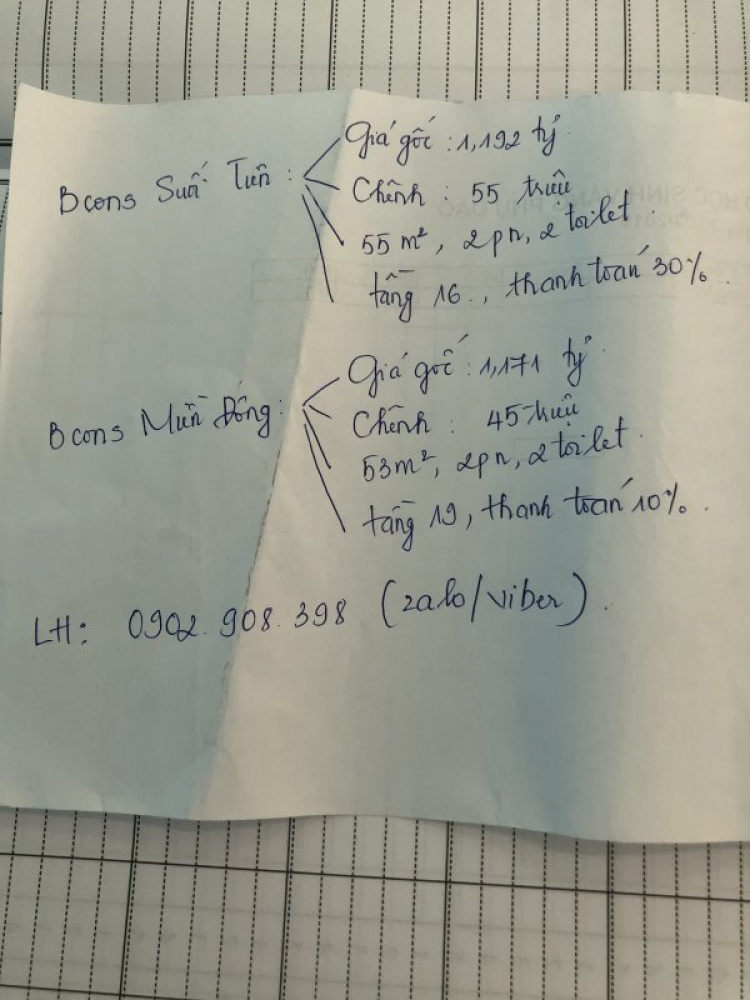 Giá gốc : 1,192 tỷ
Bcons Suối Tiên : Chênh : 55 triệu
55 m², 2pn, 2 toilet.
tầng 16., thanh toán 30%.
Giá gốc : 1,171 tỷ
Bcons Miền Đông: Chênh : 45 triệu
53m², 2pn, 2 toilet.
tầng 19, thanh toán 10%.
LH: 0902. 908. 398 (zalo/viber).